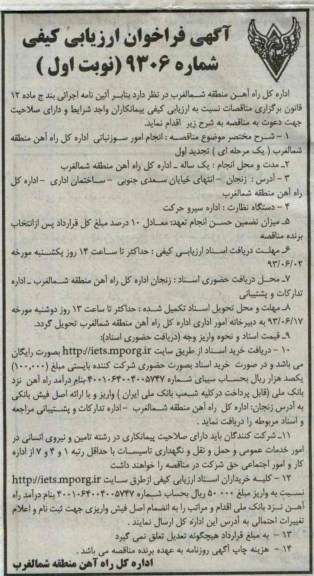 آگهی فراخوان ارزیابی کیفی
شماره ۹۳۰۶ (نوبت اول)
اداره کل راه آهن منطقه شمالغرب در نظر دارد بنابر آئین نامه اجرائی بند ج ماده ۱۲
قانون برگزاری مناقصات نسبت به ارزیابی کیفی پیمانکاران واجد شرایط و دارای صلاحیت
جهت دعوت به مناقصه به شرح زیر اقدام نماید.
۱ - شرح مختصر موضوع مناقصه : انجام امور سوزنبانی اداره کل راه آهن منطقه
شمالغرب ( یک مرحله ای ) تجدید اول
۲ـ مدت و محل انجام : یک ساله ـ اداره کل راه آهن منطقه شمالغرب
۳ - آدرس : زنجان - انتهای خیابان سعدی جنوبی - ساختمان اداری - اداره کل
راه آهن منطقه شمالغرب
۴ - دستگاه نظارت : اداره سیر و حرکت
۵ـ میزان تضمین حسن انجام تعهد: معادل ۱۰ درصد مبلغ کل قرارداد پس ازانتخاب
برنده مناقصه
۶ـ مهلت دریافت اسناد ارزیابی کیفی : حداکثر تا ساعت ۱۴ روز یکشنبه مورخه
۹۳/۰۶/۰۲
۷ـ محل دریافت حضوری اسناد : زنجان اداره کل راه آهن منطقه شمالغرب ـ اداره
تدارکات و پشتیبانی
۸ـ مهلت و محل تحویل اسناد تکمیل شده : حداکثر تا ساعت ۱۳ روز دوشنبه مورخه
۹۳/۰۶/۱۷ به دبیرخانه امور اداری اداره کل راه آهن منطقه شمالغرب تحویل گردد.
۹ـ قیمت اسناد و نحوه واریز وجه (دریافت حضوری اسناد):
۱۰ - دریافت خرید اسناد از طریق سایت http://iets.mporg.ir بصورت رایگان
می باشد و در صورت خرید اسناد بصورت حضوری شرکت کننده بایستی مبلغ (۱۰۰,۰۰۰)
یکصد هزار ریال بحساب سیبای شماره ۴۰۰۱۰۶۴۰۰۴۰۰۵۷۴۷ بنام درآمد راه آهن نزد
بانک ملی (قابل پرداخت درکلیه شعب بانک ملی ایران ) واریز و با ارائه اصل فیش بانکی
به آدرس زنجان: اداره کل راه آهن منطقه شمالغرب - اداره تدارکات و پشتیبانی مراجعه
و اسناد مربوطه را دریافت نماید .
۱۱ـ شرکت کنندگان باید دارای صلاحیت پیمانکاری در رشته تامین و نیروی انسانی در
امور خدمات عمومی و حمل و نقل و نگهداری تاسیسات با حداقل رتبه ۱ و ۴ و ۷ از اداره
کار و امور اجتماعی حق شرکت در مناقصه را خواهند داشت
۱۲ - کلیه خریداران اسناد ارزیابی کیفی ازطریق سایت http://iets.mporg.ir
نسبت به واریز مبلغ ۵۰۰۰۰ ریال بحساب شماره ۴۰۰۱۰۶۴۰۰۴۰۰۵۷۴۷ بنام درآمد راه
آهن نزد بانک ملی اقدام و مراتب را به انضمام اصل فیش واریزی جهت ثبت نام و اعلام
تغییرات احتمالی به آدرس این اداره کل ارسال نمایند .
۱۳ - به مبلغ قرارداد هیچگونه تعدیل تعلق نمی گیرد
۱۴ - هزینه چاپ آگهی روزنامه به عهده برنده مناقصه می باشد .
اداره کل راه آهن منطقه شمالغرب